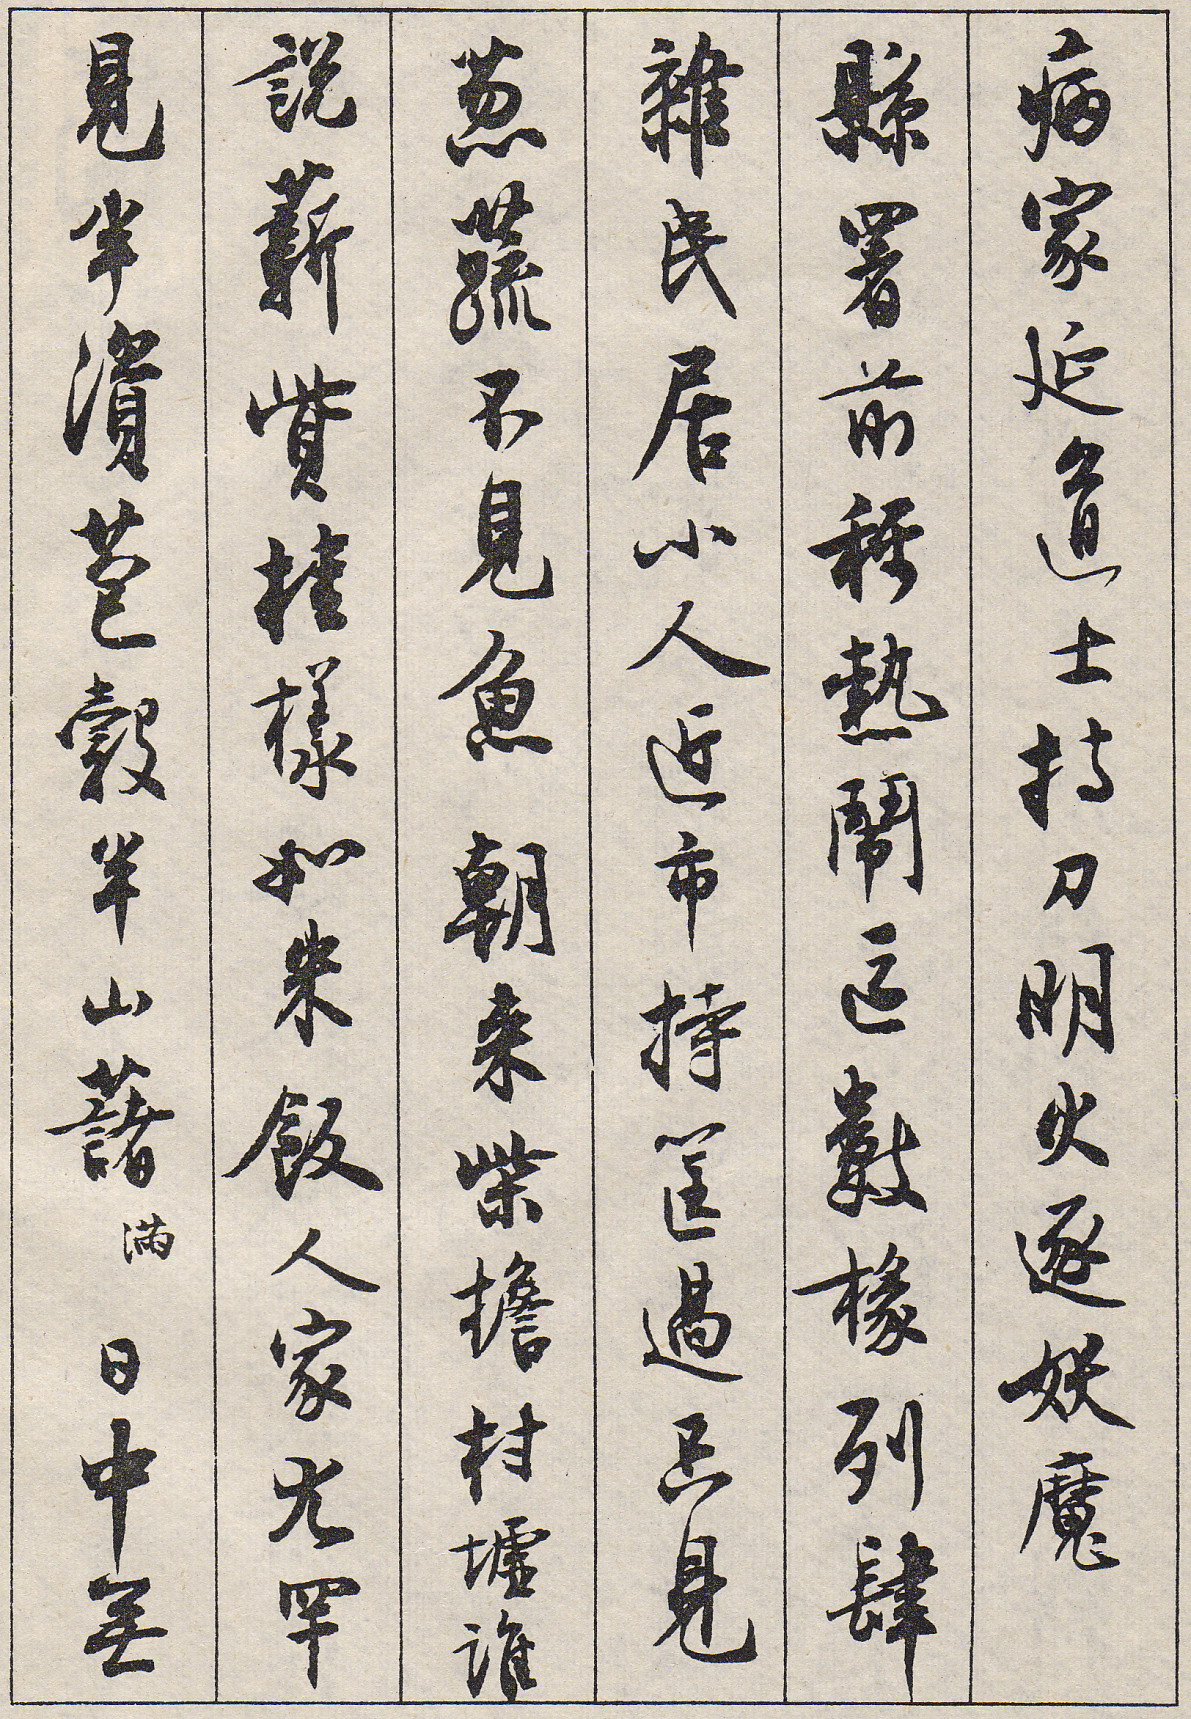 病家延道士持刀明火逐妖魔
縣署前稱熱鬧區數椽列肆
雜民居小人近市持筐過只見
葱蔬不見魚 朝来柴擔村墟誰
說薪貲桂樣如米飯人家尤罕
見半濱苞穀半山藷 滿 日中無